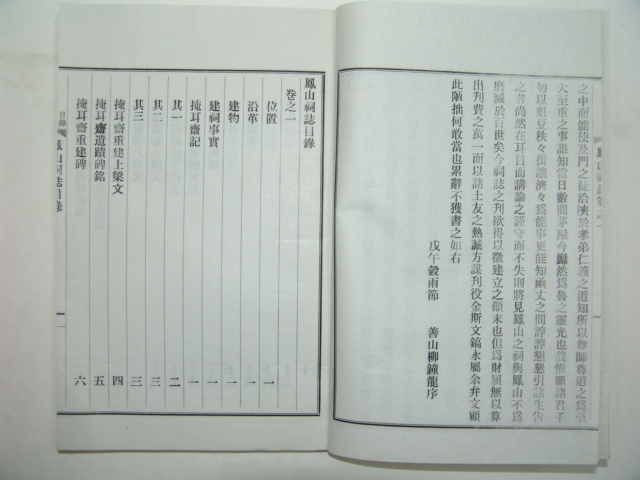 之中而能使及門之徒洽浹於孝弟仁義之道知所以尊師尊道之爲至
大至重之事誰知當日數間茅屋今巋然爲魯之靈光也哉惟願諸君子
勿以俎豆秩々揖讓濟々爲能事更能知凾丈之間諄諄懇懇引諸生告
之者尙然在耳目而講論之謹守而不失則將見鳳山之祠與鳳山不爲
磨滅於百世矣今祠誌之刋欲得以徵建立之顚末也但爲財屈無以算
出刋費之萬一而以諸士友之熱誠方謀刋役金斯文鎬永屬余弁文顧
此陋拙何敢當也累辭不獲書之如右
戊午穀雨節 善山柳鐘龍序
鳳山祠誌目錄
卷之一
位置 一
沿革 一
建物 一
建祠事實 一
掩耳齋記 一
其一 二
其二 三
其三 三
掩耳齋重建上梁文 四
掩耳齋遺蹟碑銘 五
掩耳齋重建碑 六
目錄 鳳山祠誌目錄 一